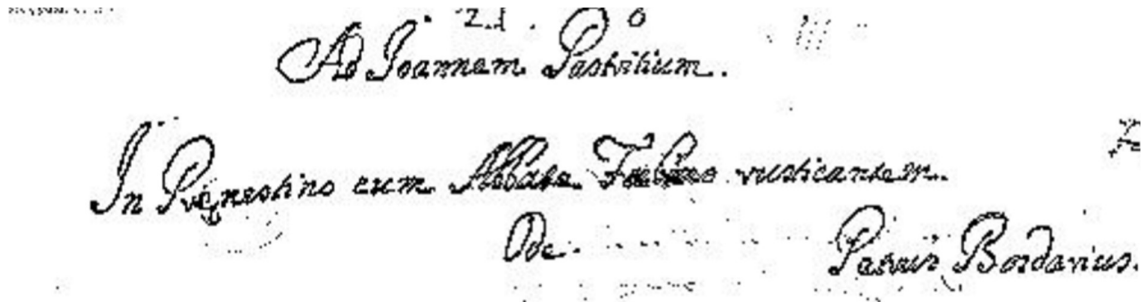 Ad Joannem Pastritium.
In Prænestino cum Abbate Fabrino rusticantem.
Ode.
Petrus Bordarius.